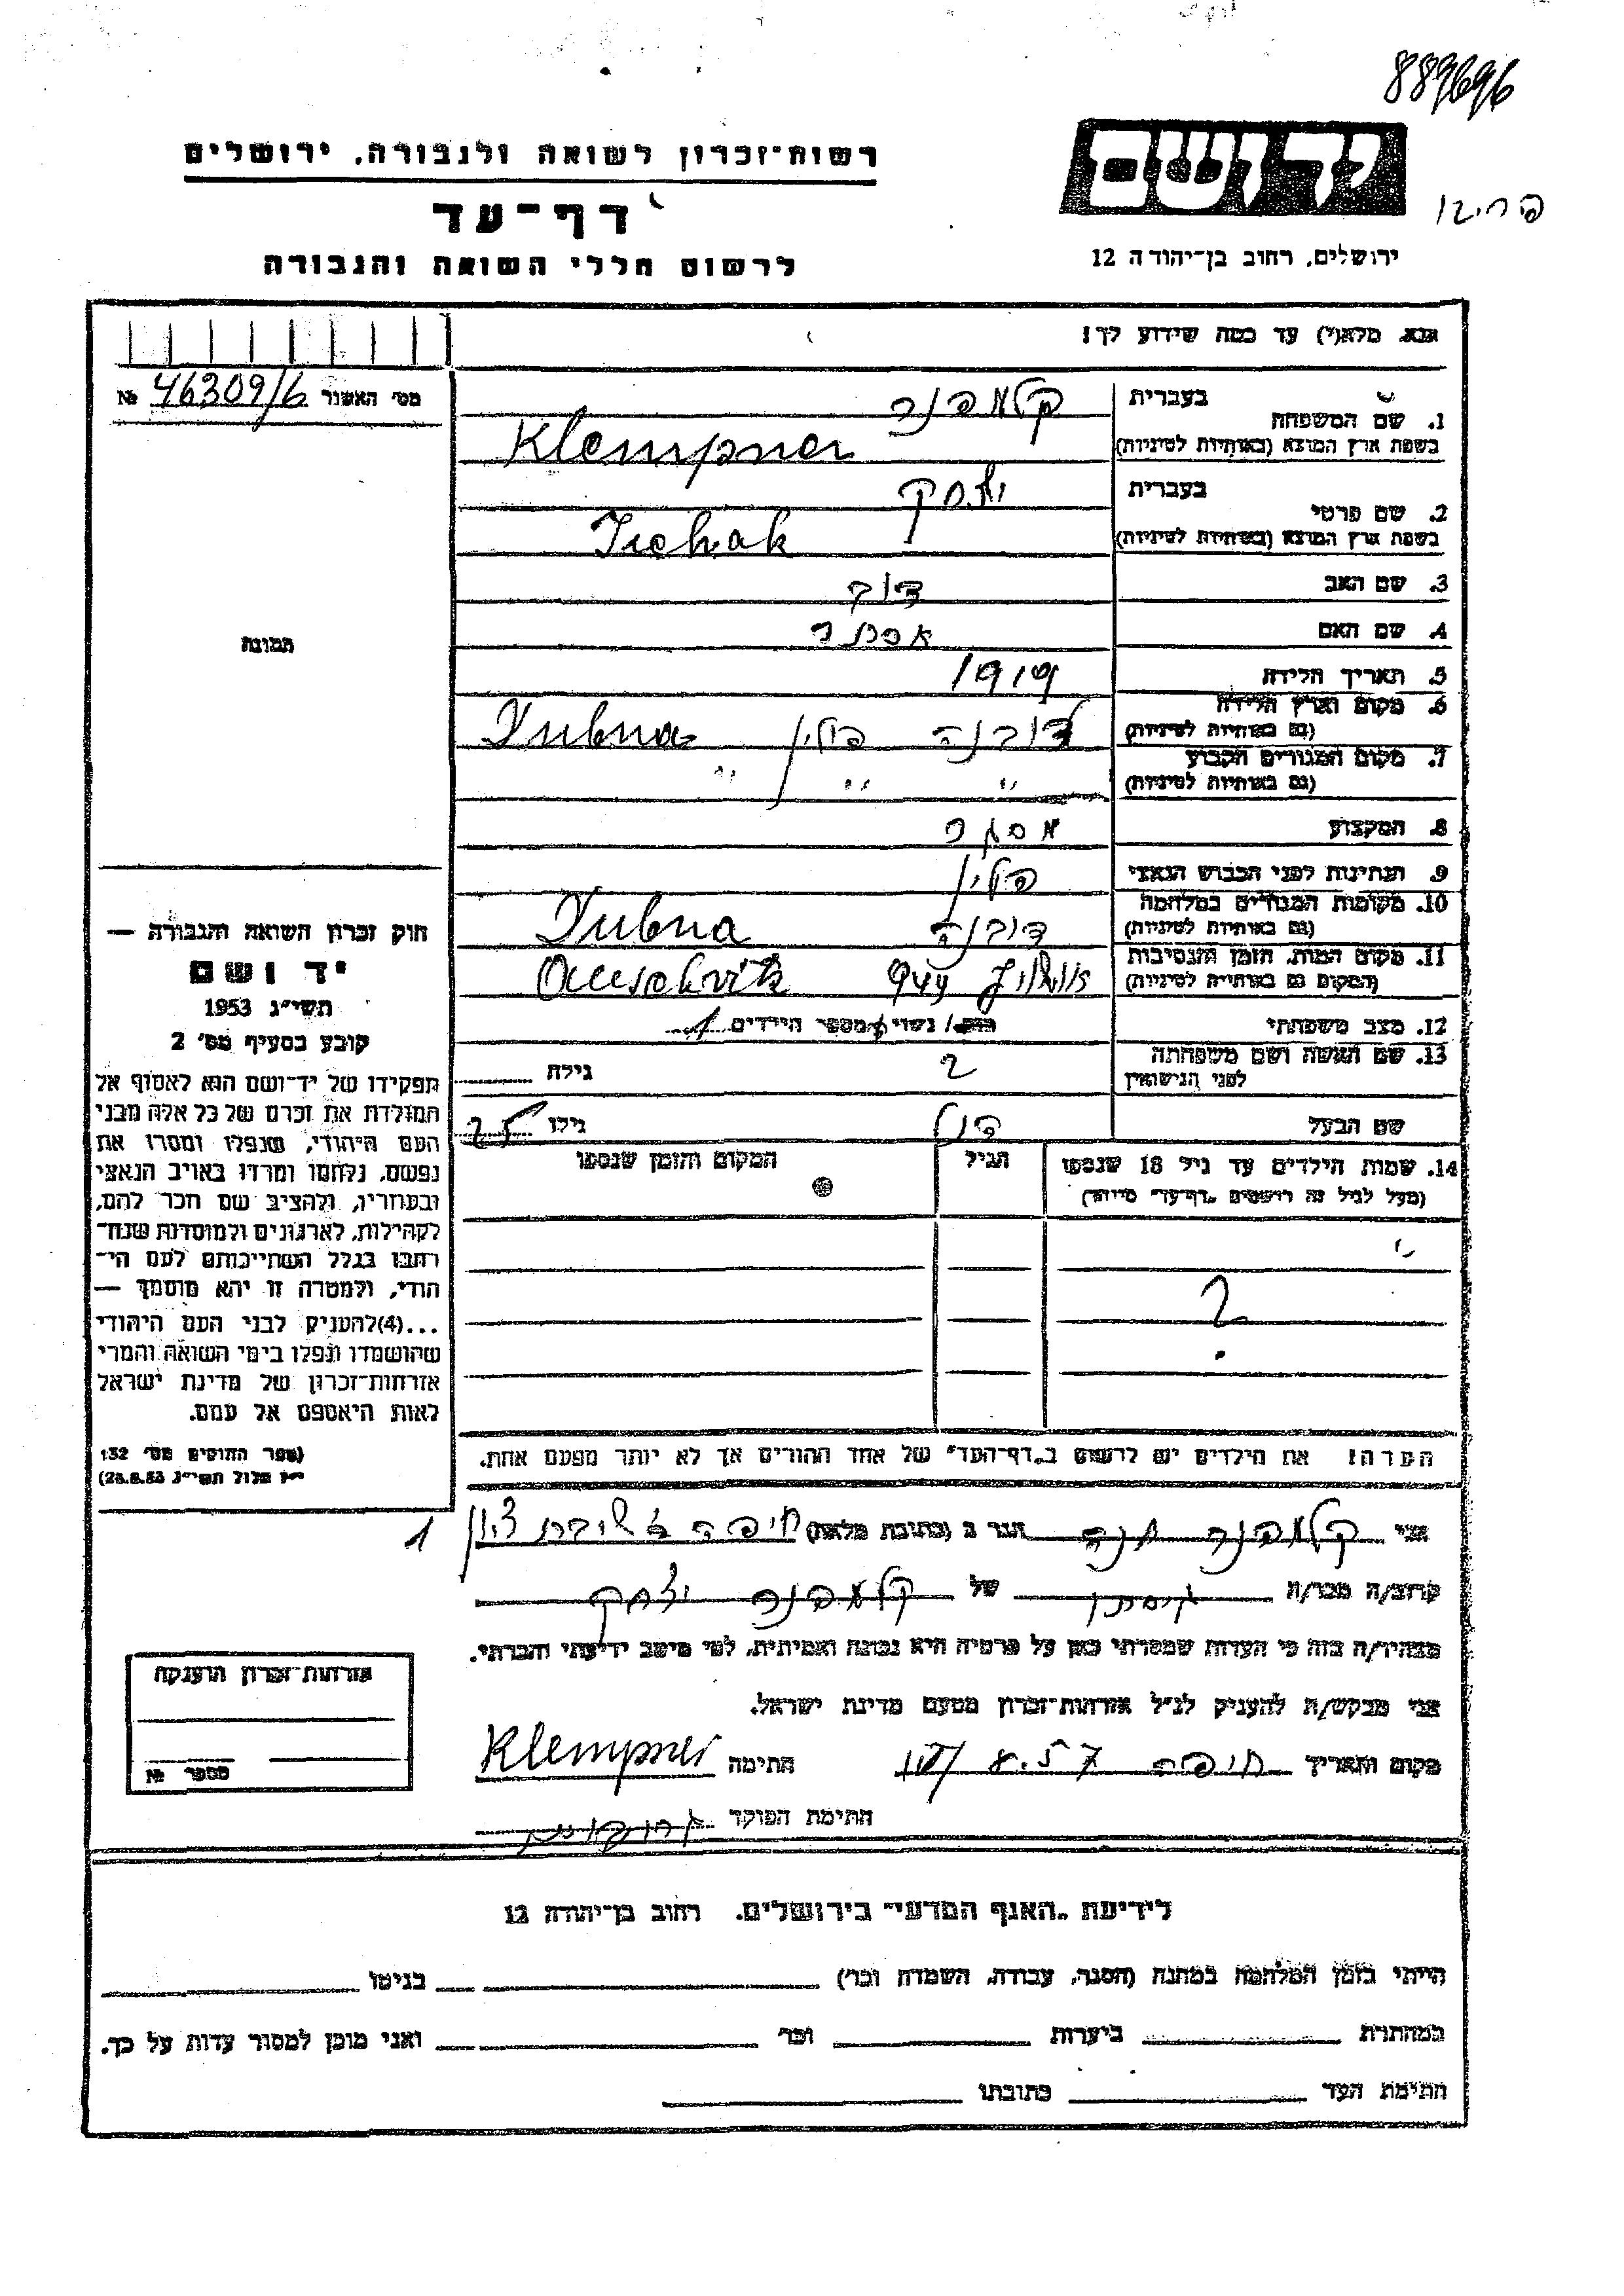 889696
רשות־זכרון לשואה ולגבורה, ירושלים
יד ושם
דף־עד
לרשום חללי השואה והגבורה
ירושלים, רחוב בן־יהודה 12
נא מלא(י) עד כמה שידוע לך!
מס׳ האשנר № 46309/6
1. שם המשפחה
בעברית קלמפנר
בשפת ארץ המוצא (באותיות לטיניות) Klempner
2. שם פרטי
בעברית יצחק
בשפת ארץ המוצא (באותיות לטיניות) Izchak
3. שם האב דוד
4. שם האם אסתר
5. תאריך הלידה 1919
6. מקום וארץ הלידה
(גם באותיות לטיניות) דובנה פולין Dubna
7. מקום המגורים הקבוע
(גם באותיות לטיניות) " " " "
8. המקצוע מסגר
9. הנתינות לפני הכבוש הנאצי פולין
10. מקומות המגורים במלחמה
(גם באותיות לטיניות) דובנה Dubna
11. מקום המות, הזמן והנסיבות
(המקום גם באותיות לטיניות) 944 Auschvitz
12. מצב משפחתי רווק / נשוי / מספר הילדים 1
13. שם האשה ושם משפחתה
לפני הנישואין ? גילה
שם הבעל גילו 25
14. שמות הילדים עד גיל 18 שנספו
(מעל לגיל זה רושמים „דף־עד״ מיוחד)
הגיל
המקום והזמן שנספו
?
הערה: את הילדים יש לרשום ב„דף־העד״ של אחד ההורים אך לא יותר מפעם אחת.
תמונה
חוק זכרון השואה והגבורה —
יד ושם
תשי״ג 1953
קובע בסעיף מס׳ 2
תפקידו של יד־ושם הוא לאסוף אל
המולדת את זכרם של כל אלה מבני
העם היהודי, שנפלו ומסרו את
נפשם, נלחמו ומרדו באויב הנאצי
ובעוזריו, ולהציב שם וזכר להם,
לקהילות, לארגונים ולמוסדות שנח־
רבו בגלל השתייכותם לעם הי־
הודי, ולמטרה זו יהא מוסמך —
...(4)להעניק לבני העם היהודי
שהושמדו ונפלו בימי השואה והמרי
אזרחות־זכרון של מדינת ישראל
לאות היאספם אל עמם.
(ספר החוקים מס׳ 132
י״ז אלול תשי״ג 28.8.53)
1
אני קלמפנר חנה הגר ב (כתובת מלאה) חיפה
קרוב/ה מכר/ה של קלמפנר יצחק
מצהיר/ה בזה כי העדות שמסרתי כאן על פרטיה היא נכונה ואמיתית, לפי מיטב ידיעתי והכרתי.
אני מבקש/ת להעניק לנ״ל אזרחות־זכרון מטעם מדינת ישראל.
מקום ותאריך חיפה 8.57 חתימה Klempner
חתימת הפוקד
אזרחות־זכרון הוענקה
מספר №
לידיעת „האגף המדעי״ בירושלים, רחוב בן־יהודה 12
הייתי בזמן המלחמה במחנה (הסגר, עבודה, השמדה וכו׳) בגיטו
במחתרת ביערות וכו׳ ואני מוכן למסור עדות על כך.
חתימת העד כתובתו